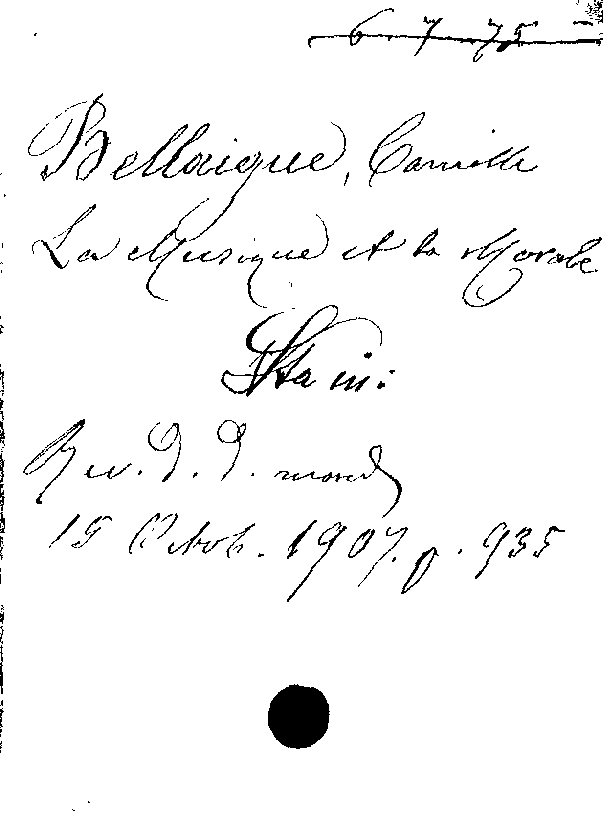 6 7 75
Bellaigue, Camille
La Musique et la Morale
Sta in:
Rev. d. d. mond
15 Octob. 1907. p. 935